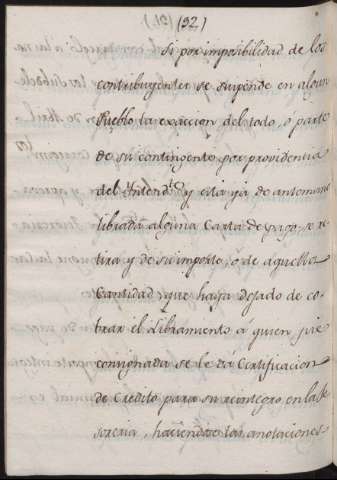 (92)
Si por imposibilidad de los
contribuyentes se suspende en algun
Pueblo la exaccion del todo, o parte
de su contingente por providencia
del Yntend.te y está yá de antemano
librada alguna Carta de pago, se re-
tira y de su importe, ò de aquella
Cantidad, que haya dejado de co-
brar el Libramiento á quien fue
consignada se le dá Certificacion
de Credito para su reintegro en la The-
soreria, haciendose las anotaciones